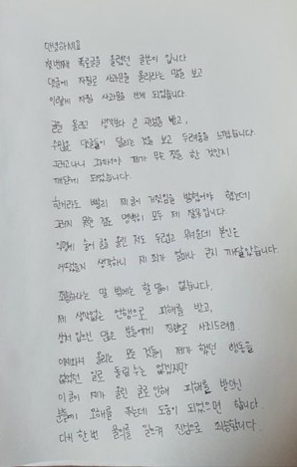 안녕하세요
첫번째 폭로글을 올렸던 글쓴이 입니다
댓글에 자필로 사과문을 올리라는 말을 보고
이렇게 자필 사과문을 쓰게 되었습니다.
글을 올리고 생각보다 큰 관심을 받고,
수많은 댓글들이 달리는 것을 보고 두려움을 느꼈습니다.
그러고나니 그제서야 제가 무슨 짓을 한 것인지
깨닫게 되었습니다.
한시라도 빨리 제 글에 거짓임을 밝혔어야 했는데
그러지 못한 점도 명백히 모두 제 잘못입니다.
이렇게 글을 올린 저도 두렵고 무서운데 본인은
어땠을지 생각하니 제 죄가 얼마나 큰지 깨달았습니다.
죄송하다는 말 밖에는 할 말이 없습니다.
제 생각없는 언행으로 피해를 받고,
상처 입으신 많은 분들에게 진심으로 사죄드려요.
이제와서 올리는 모든 것들이 제가 했던 행동을
없었던 일로 돌릴 수는 없겠지만
이 글이 제가 올린 글로 인해 피해를 받으신
분들에 오해를 푸는데 도움이 되었으면 합니다
다시 한 번 물의를 일으켜 진심으로 죄송합니다.